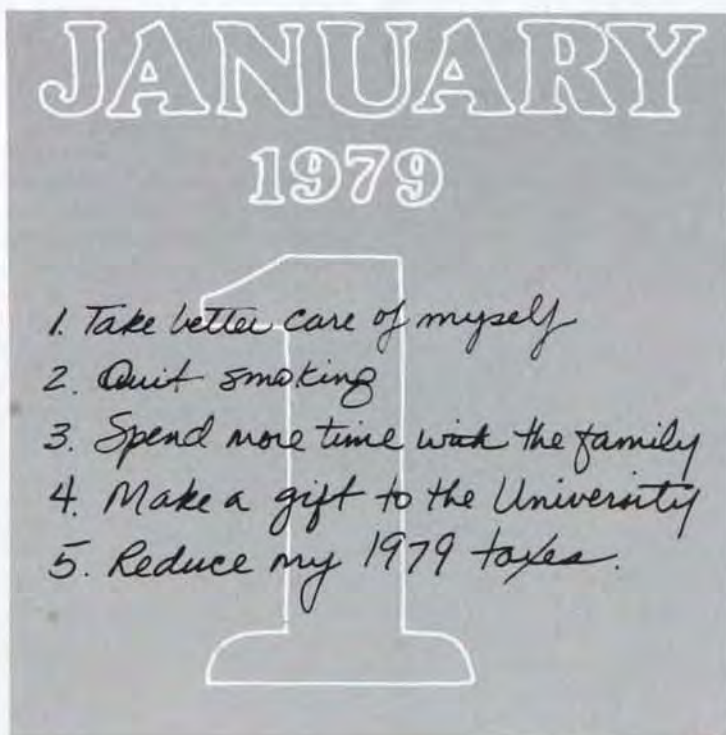 JANUARY
1979
1
1. Take better care of myself
2. Quit smoking
3. Spend more time with the family
4. Make a gift to the University
5. Reduce my 1979 taxes.